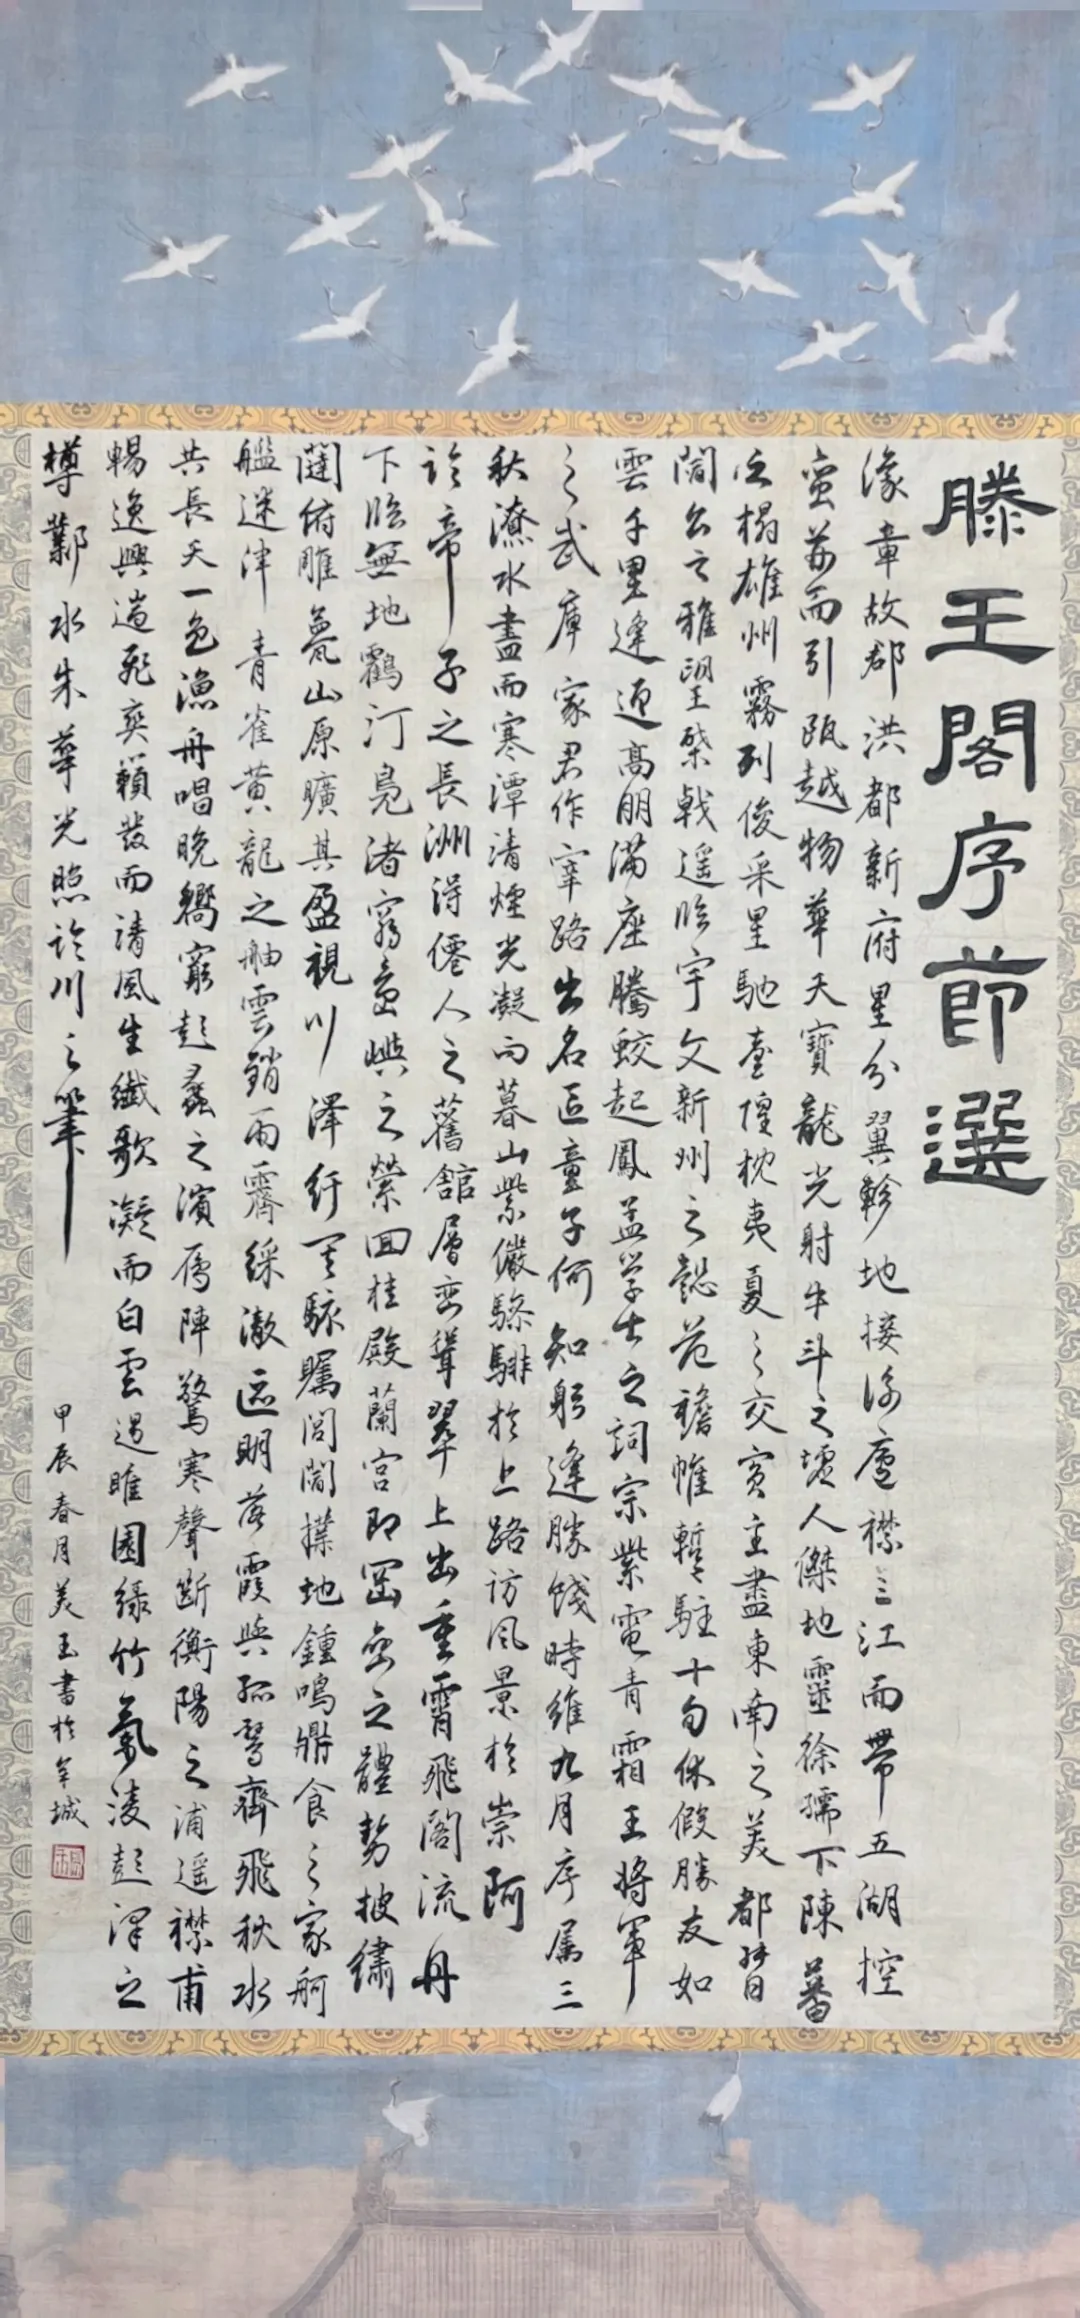 滕王閣序節選
豫章故郡洪都新府星分翼軫地接衡廬襟三江而帶五湖控
蠻荊而引甌越物華天寶龍光射牛斗之墟人傑地靈徐孺下陳蕃
之榻雄州霧列俊采星馳臺隍枕夷夏之交賓主盡東南之美都督
閻公之雅望棨戟遙臨宇文新州之懿范襜帷暫駐十旬休假勝友如
雲千里逢迎高朋滿座騰蛟起鳳孟學士之詞宗紫電青霜王將軍
之武庫家君作宰路出名區童子何知躬逢勝餞時維九月序属三
秋潦水盡而寒潭清煙光凝而暮山紫儼驂騑於上路访風景於崇阿
臨帝子之長洲得僊人之舊館層巒聳翠上出重霄飛阁流丹
下臨無地鶴汀鳧渚窮島嶼之縈回桂殿蘭宮即岡巒之體勢披繡
闥俯雕甍山原曠其盈視川澤紆其駭矚閭閻撲地鍾鳴鼎食之家舸
艦迷津青雀黃龍之舳雲銷雨霽綵澈區明落霞與孤鶩齊飛秋水
共長天一色漁舟唱晚響窮彭蠡之濱雁陣驚寒聲斷衡陽之浦遥襟甫
暢逸興遄飛爽籟發而清風生纖歌凝而白雲遏睢園绿竹氣凌彭澤之
樽鄴水朱華光照臨川之筆
甲辰春月美玉書於羊城